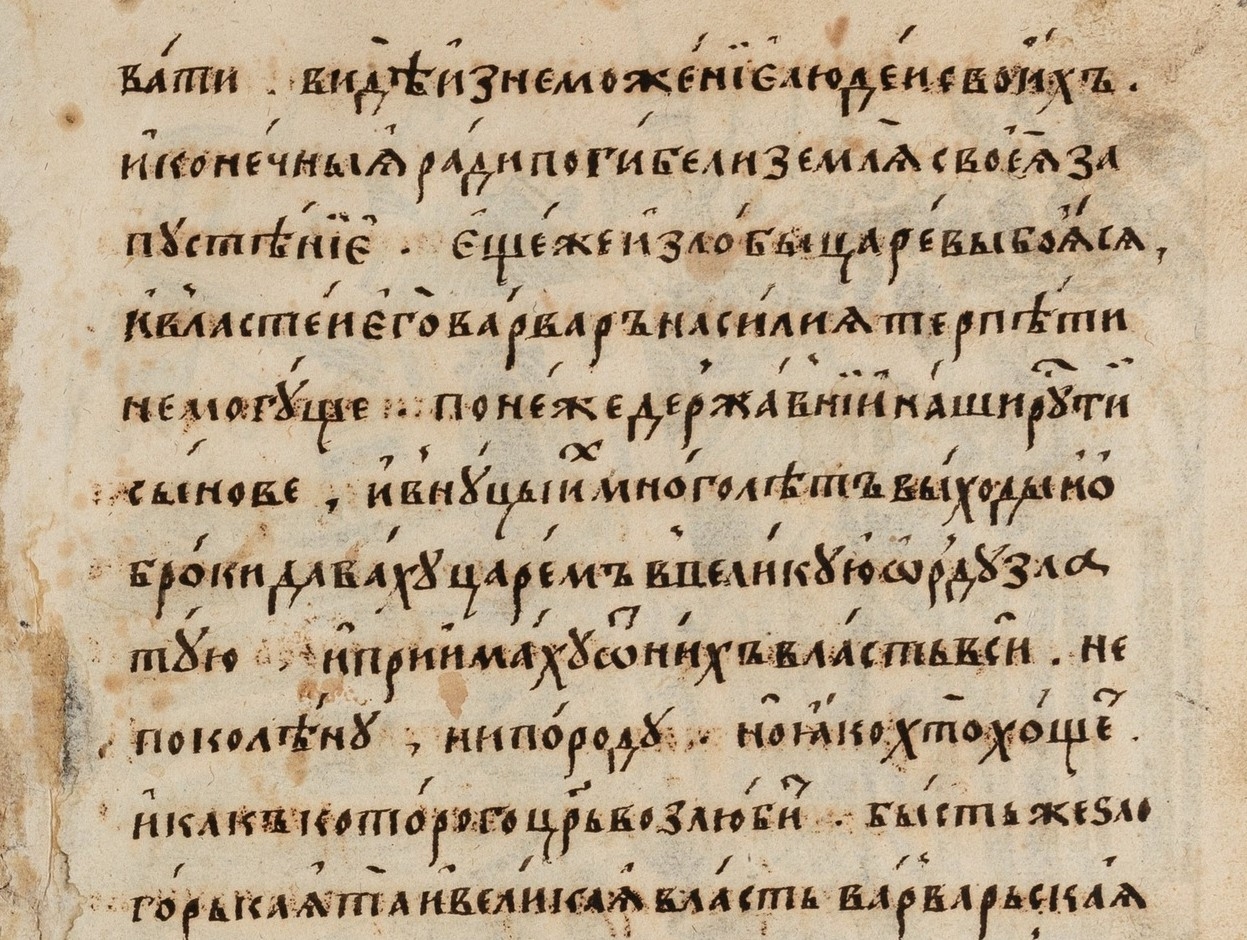 ва́ти . видѣ и҆знеможе́нїе люде́и свои́хъ .
и҆ коне́чныѧ ра́ди поги́бели землѧ̀ своеѧ̀ за
пꙋстѣ́нїе . є҆ще́же и҆ зло́бы царе́вы боѧ́сѧ ,
и҆ власте́и є҆гѡ̀ ва́рваръ наси́лиѧ терпѣ́ти
немогꙋ́ще . поне́же держа́внїи на́ши рꙋ́ⷭ҇тїи
сы́нове , и҆ внꙋ́цы и҆́ⷯ мно́го лѣтъ вы́ходы и҆ ѻ҆
бро́ки дава́хꙋ царе́мъ в вели́кꙋю ѡ҆рдꙋ̀ зла
тꙋ́ю , и҆ прии҆ма́хꙋ ѿ ни́хъ вла́сть вси̑ . не
по колѣ́нꙋ , ни по́ родꙋ . но̀ ꙗ҆́ко хто̀ хо́щеⷮ .
и҆ ка́къ кото́рого цр҃ь возлю́биⷮ . бы́сть же ѕло
го́рькаѧ та̀ и҆ вели́каѧ вла́сть ва́рварьскаѧ